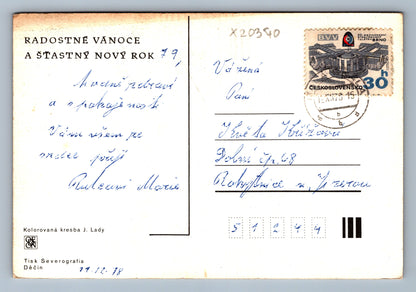 RADOSTNÉ VÁNOCE
A ŠŤASTNÝ NOVÝ ROK 79,
Hodně zdraví
a spokojenosti
Vám všem ze
srdce přejí
Marie
Kolorovaná kresba J. Lady
Tisk Severografia
Děčín
11.12.78
X20340
BRNO
ČESKOSLOVENSKO
30h
Vážená
Paní
Květa Křížova
Dolní čp. 68
Rokytnice n. Jizerou
5 1 2 4 4